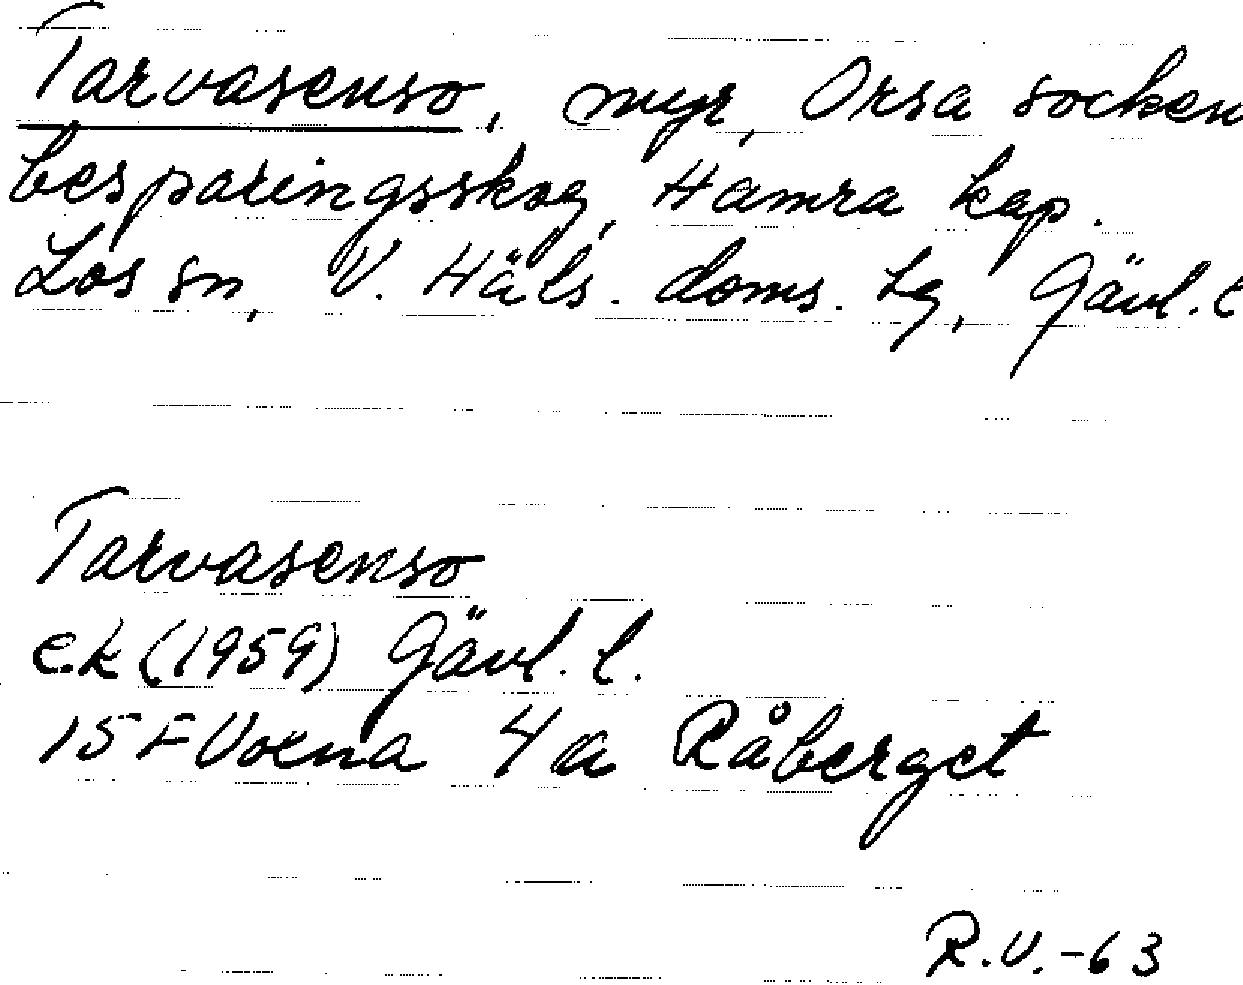 Tarvasenso, myr, Orsa socken
besparingsskog, Hamra kap.
Los sn, V. Häls. doms. lg, Gävl. l
Tarvasenso
e.k (1959) Gävl. l.
15 F Voxna 4 a Råberget
R.V.-63